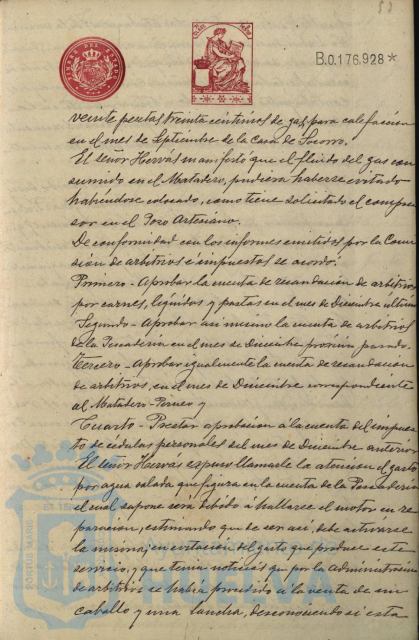 B.0.176.928*
veinte pesetas treinta centimos de gas para calefaccion
en el mes de Septiembre de la Casa de Socorro.
El señor Hervás manifestó que el fluido del gas con
sumido en el Matadero, pudiera haberse evitado
habiéndose colocado, como tiene solicitado el compre
sor en el Pozo Artesiano.
De conformidad con los informes emitidos por la Comi
sión de arbitrios é impuestos se acordó:
Primero - Aprobar la cuenta de recaudación de arbitrios
por carnes, líquidos y pastas en el mes de Diciembre último
Segundo - Aprobar asi mismo la cuenta de arbitrios
de la Pescaderia en el mes de Diciembre próximo pasado.
Tercero - Aprobar igualmente la cuenta de recaudación
de arbitrios, en el mes de Diciembre correspondiente
al Matadero - Porneo y
Cuarto - Prestar aprobacion á la cuenta del impues
to de cédulas personales del mes de Diciembre anterior
El señor Hervás expuso llamarle la atencion el gasto
por agua salada que figura en la cuenta de la Pescaderia
el cual supone será debido á hallarse el motor en re
paracion, estimando que de ser asi debe activarse
la misma, en evitacion del gasto que produce este
servicio, y que tenia noticias que por la Administracion
de arbitrios se habia procedido á la venta de un
caballo y una lancha, desconociendo si esta
PORTUS MARIS
HUELVA